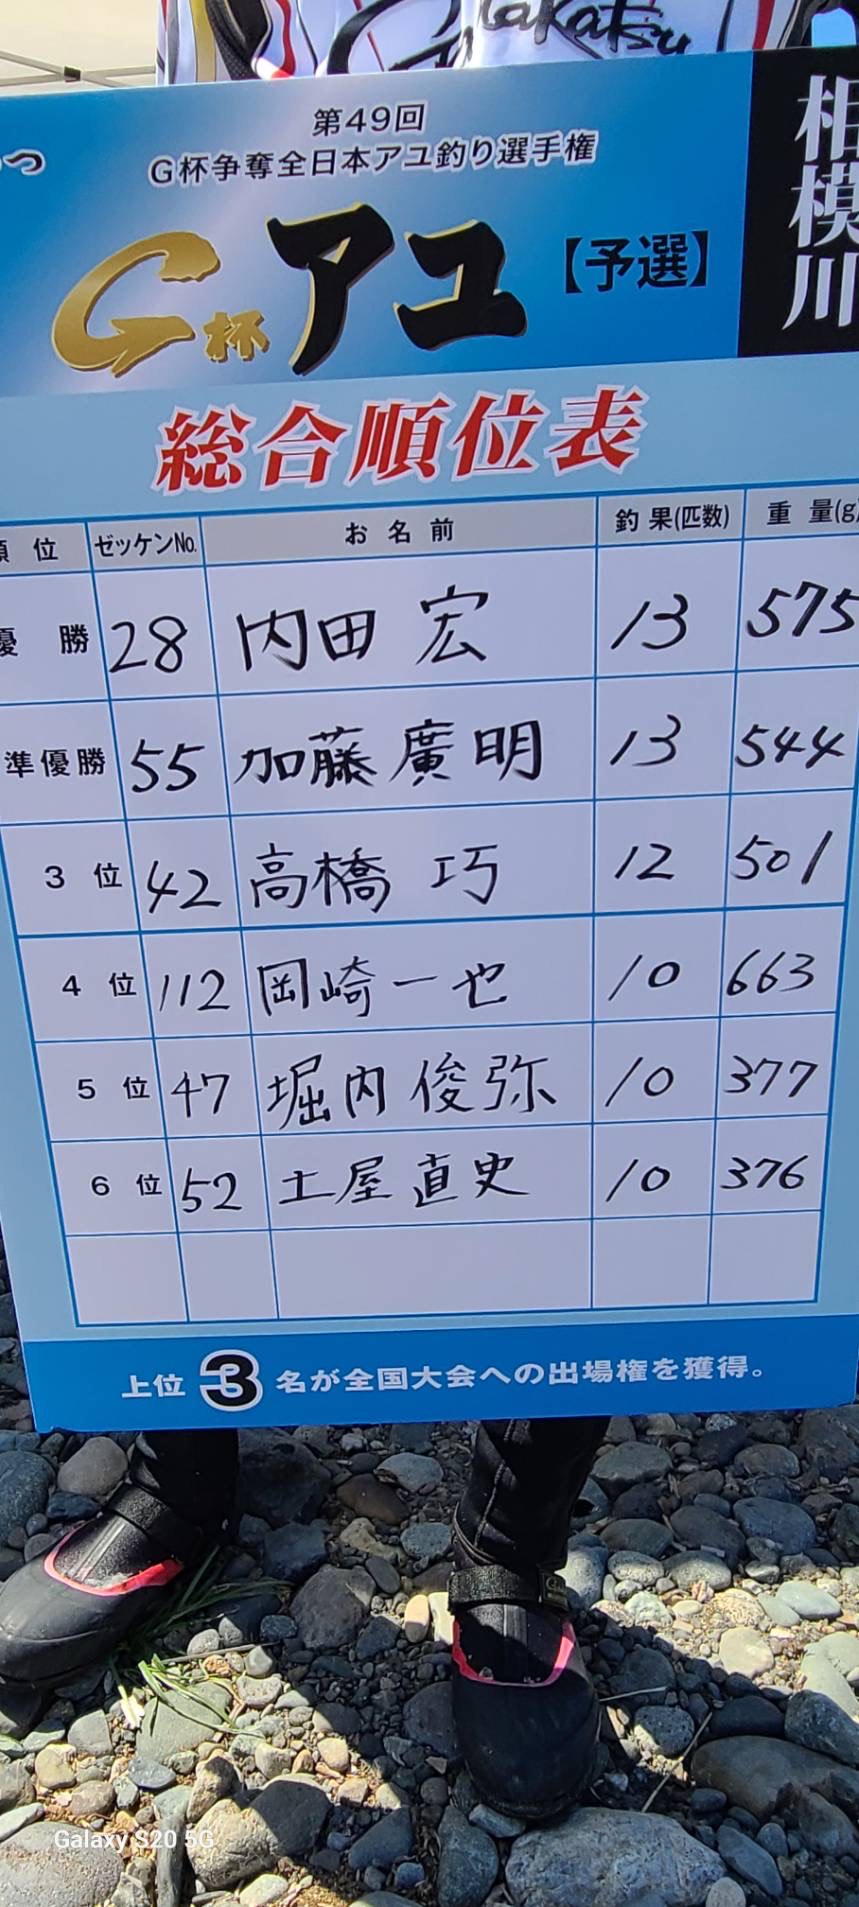 akatsu
つ
第49回
G杯争奪全日本アユ釣り選手権
G杯アユ【予選】
相模川
総合順位表
順位 ゼッケンNo. お名前 釣果(匹数) 重量(g)
優勝 28 内田 宏 13 575
準優勝 55 加藤 廣明 13 544
3位 42 高橋 巧 12 501
4位 112 岡崎 一也 10 663
5位 47 堀内 俊弥 10 377
6位 52 土屋 直史 10 376
上位3名が全国大会への出場権を獲得。
Galaxy S20 5G